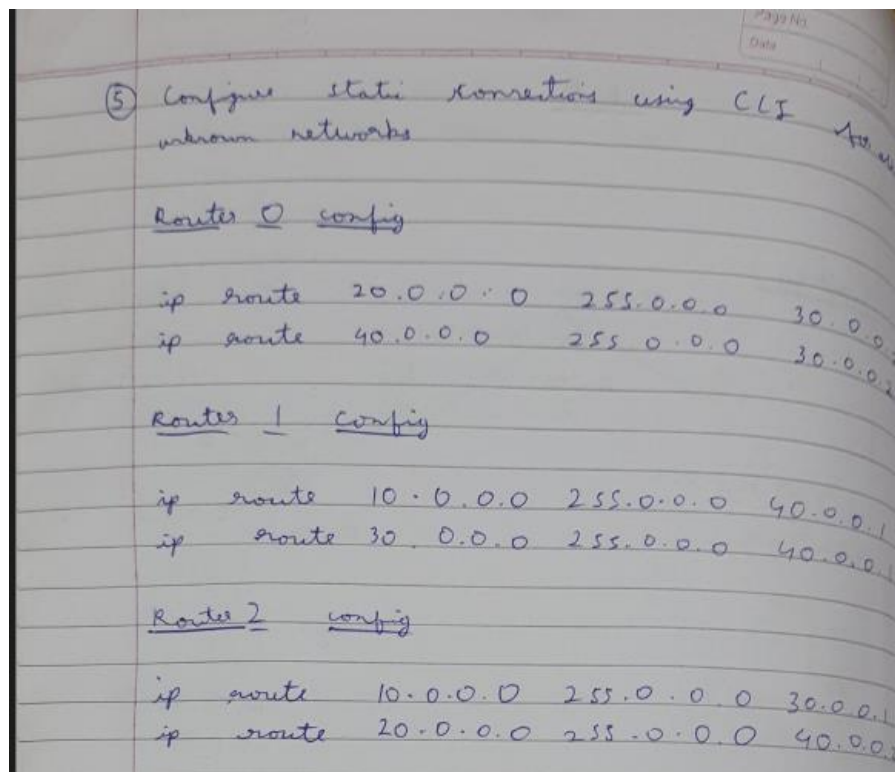 Page No.
Date
⑤ Configure static connections using CLI for
unknown networks
Router 0 config
ip route 20.0.0.0 255.0.0.0 30.0.0.
ip route 40.0.0.0 255.0.0.0 30.0.0.2
Router 1 config
ip route 10.0.0.0 255.0.0.0 40.0.0.1
ip route 30.0.0.0 255.0.0.0 40.0.0.1
Router 2 config
ip route 10.0.0.0 255.0.0.0 30.0.0.1
ip route 20.0.0.0 255.0.0.0 40.0.0.